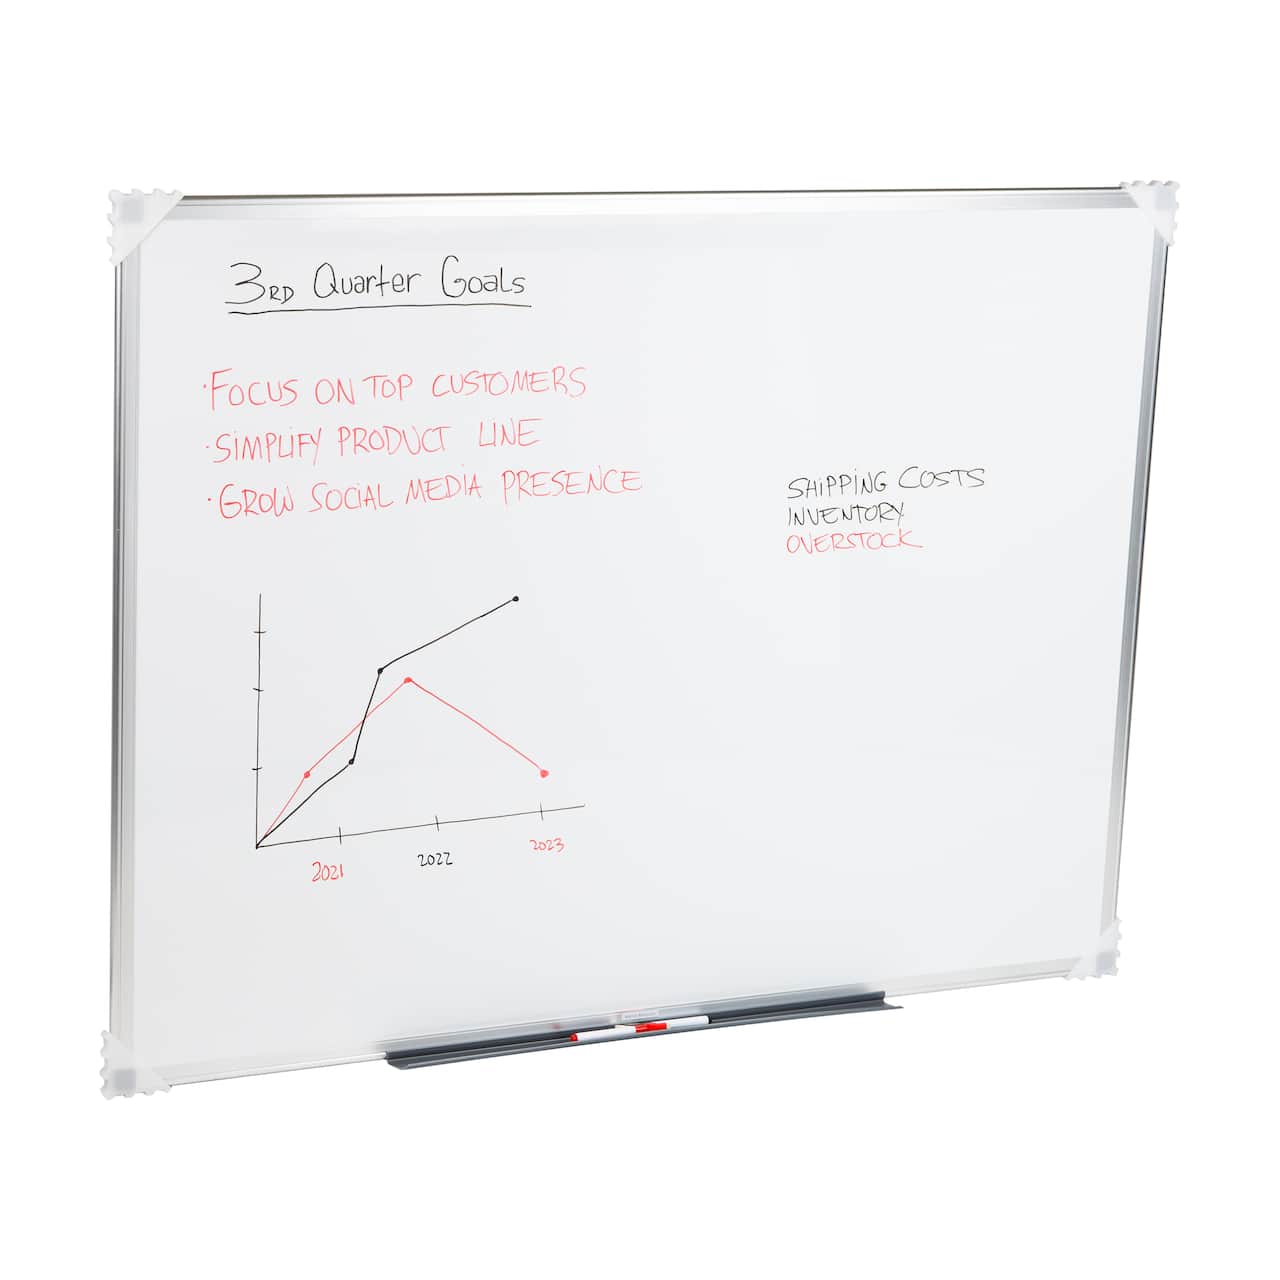 3RD Quarter Goals
· FOCUS ON TOP CUSTOMERS
· SIMPLIFY PRODUCT LINE
· GROW SOCIAL MEDIA PRESENCE
SHIPPING COSTS
INVENTORY
OVERSTOCK
2021 2022 2023